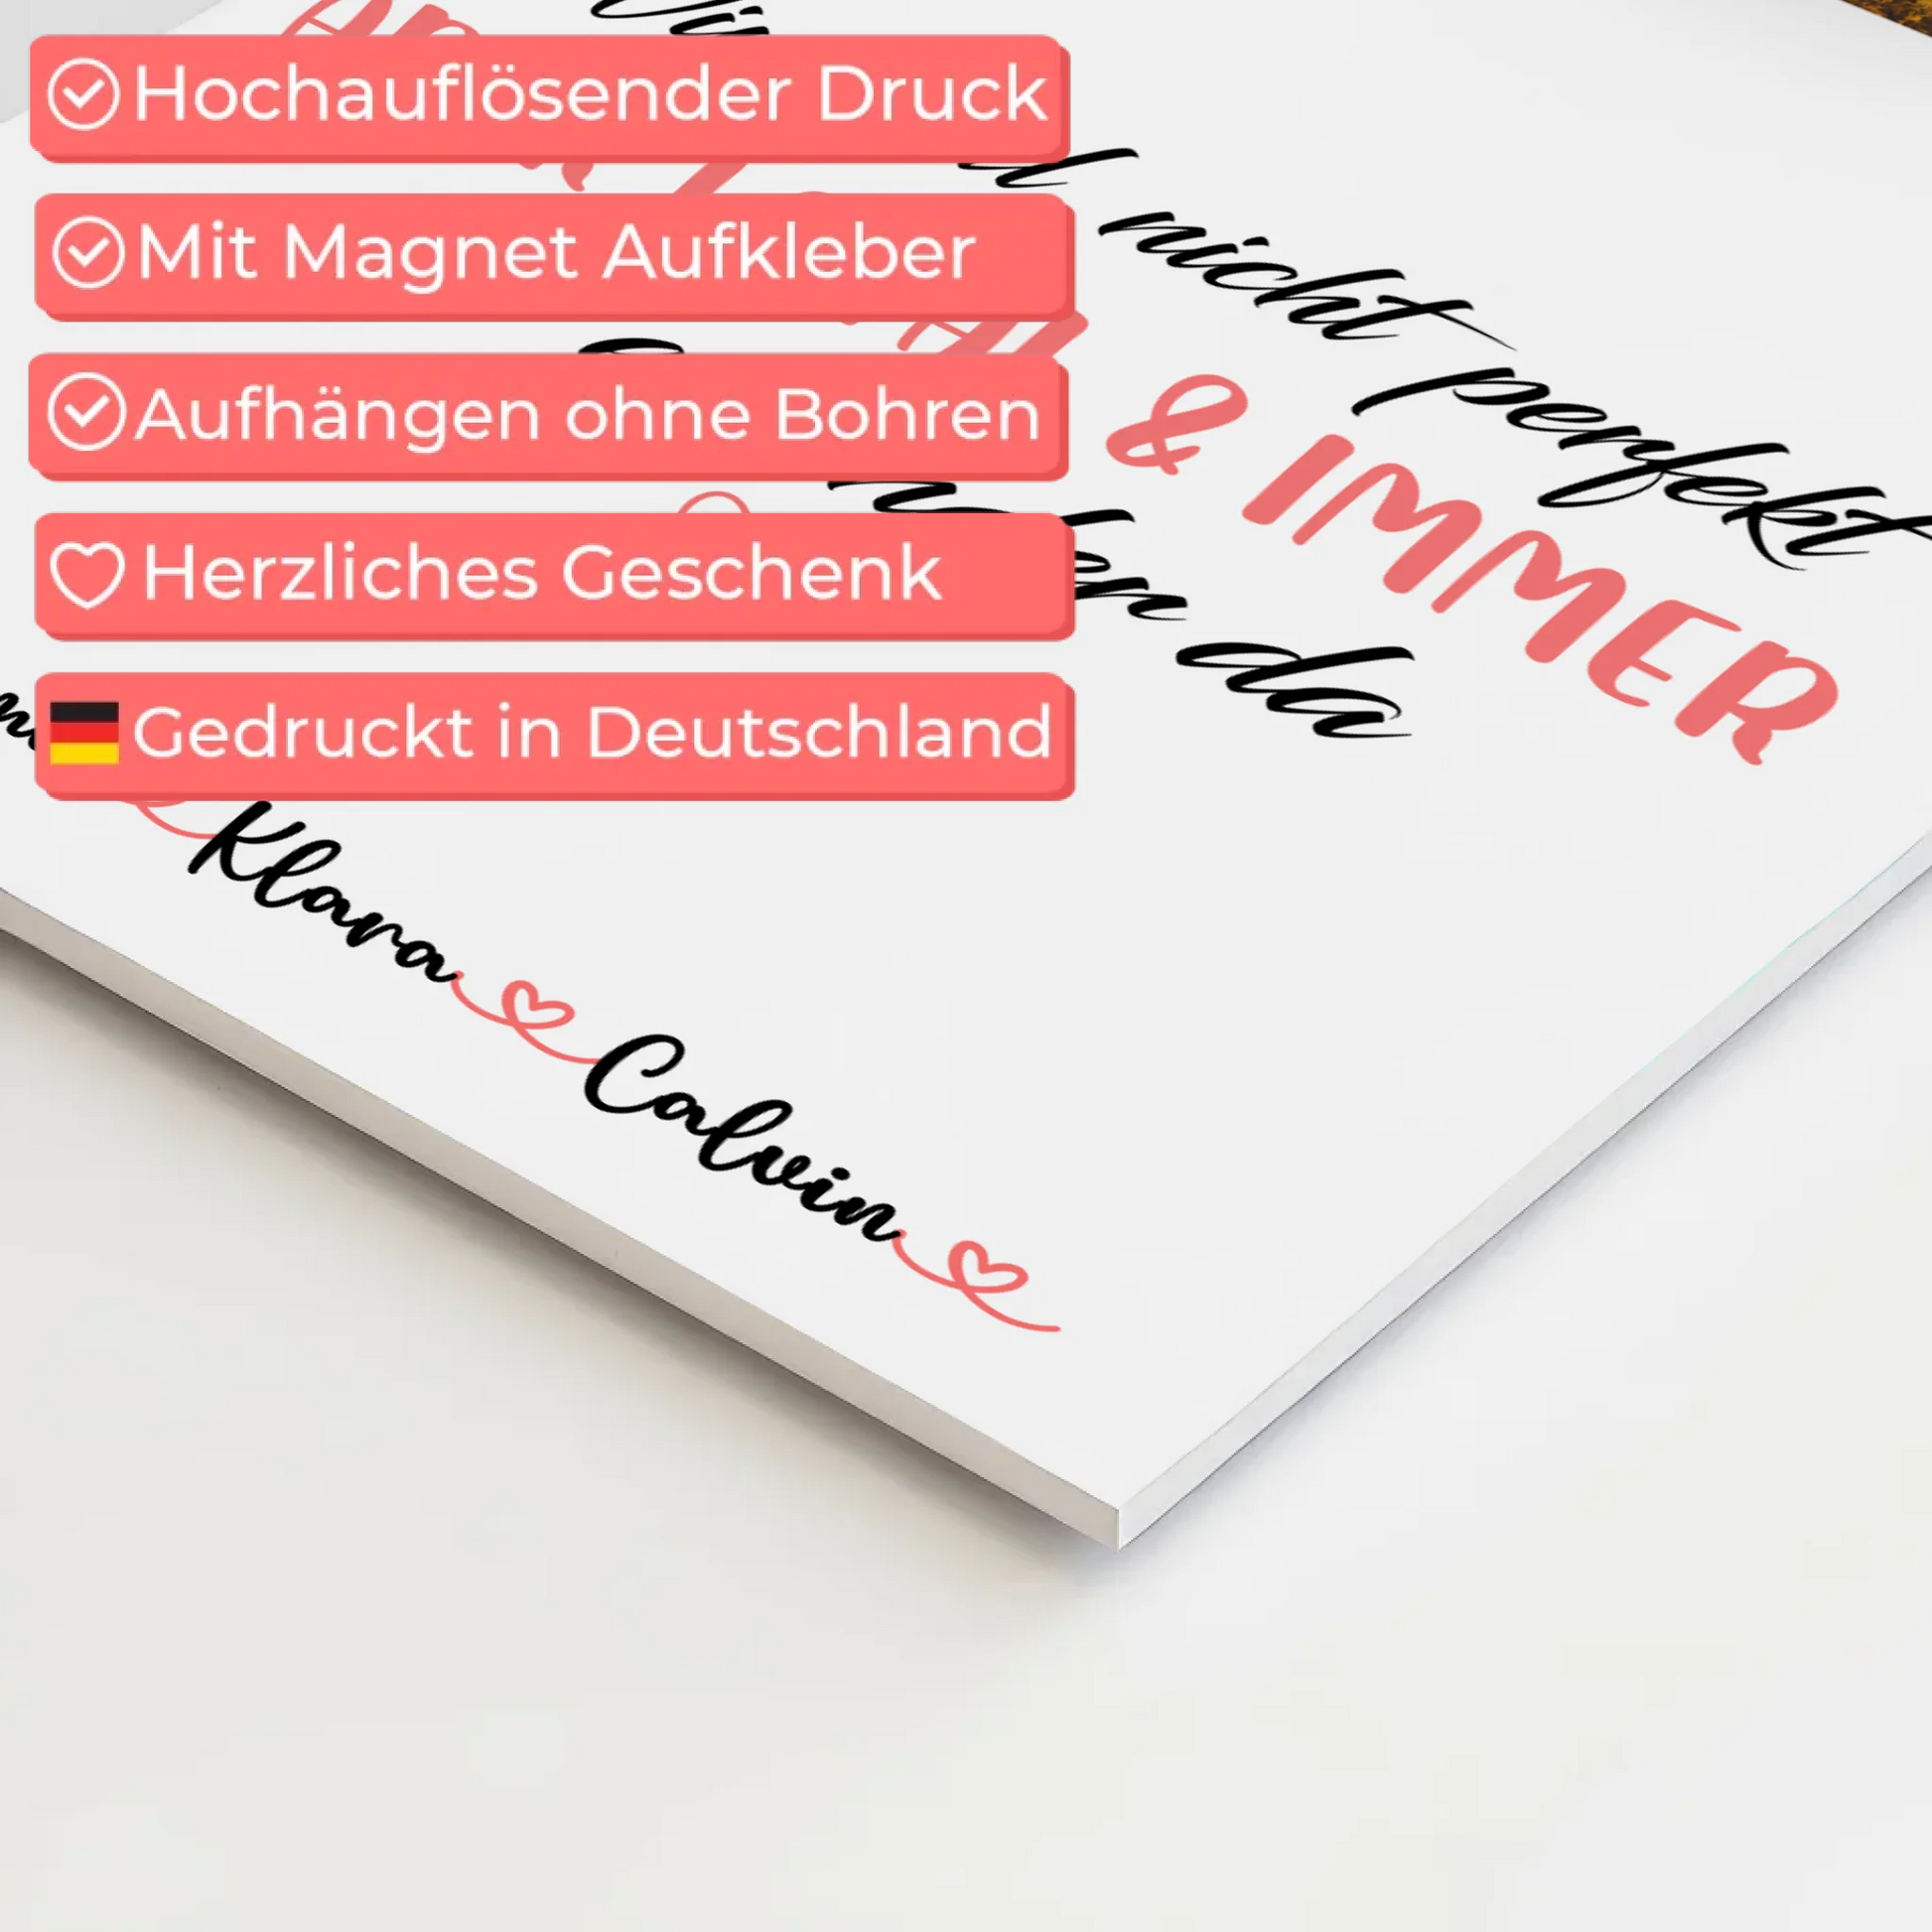 Hochauflösender Druck
Mit Magnet Aufkleber
Aufhängen ohne Bohren
Herzliches Geschenk
Gedruckt in Deutschland
nicht perfekt
& IMMER
da
Klara
Calvin